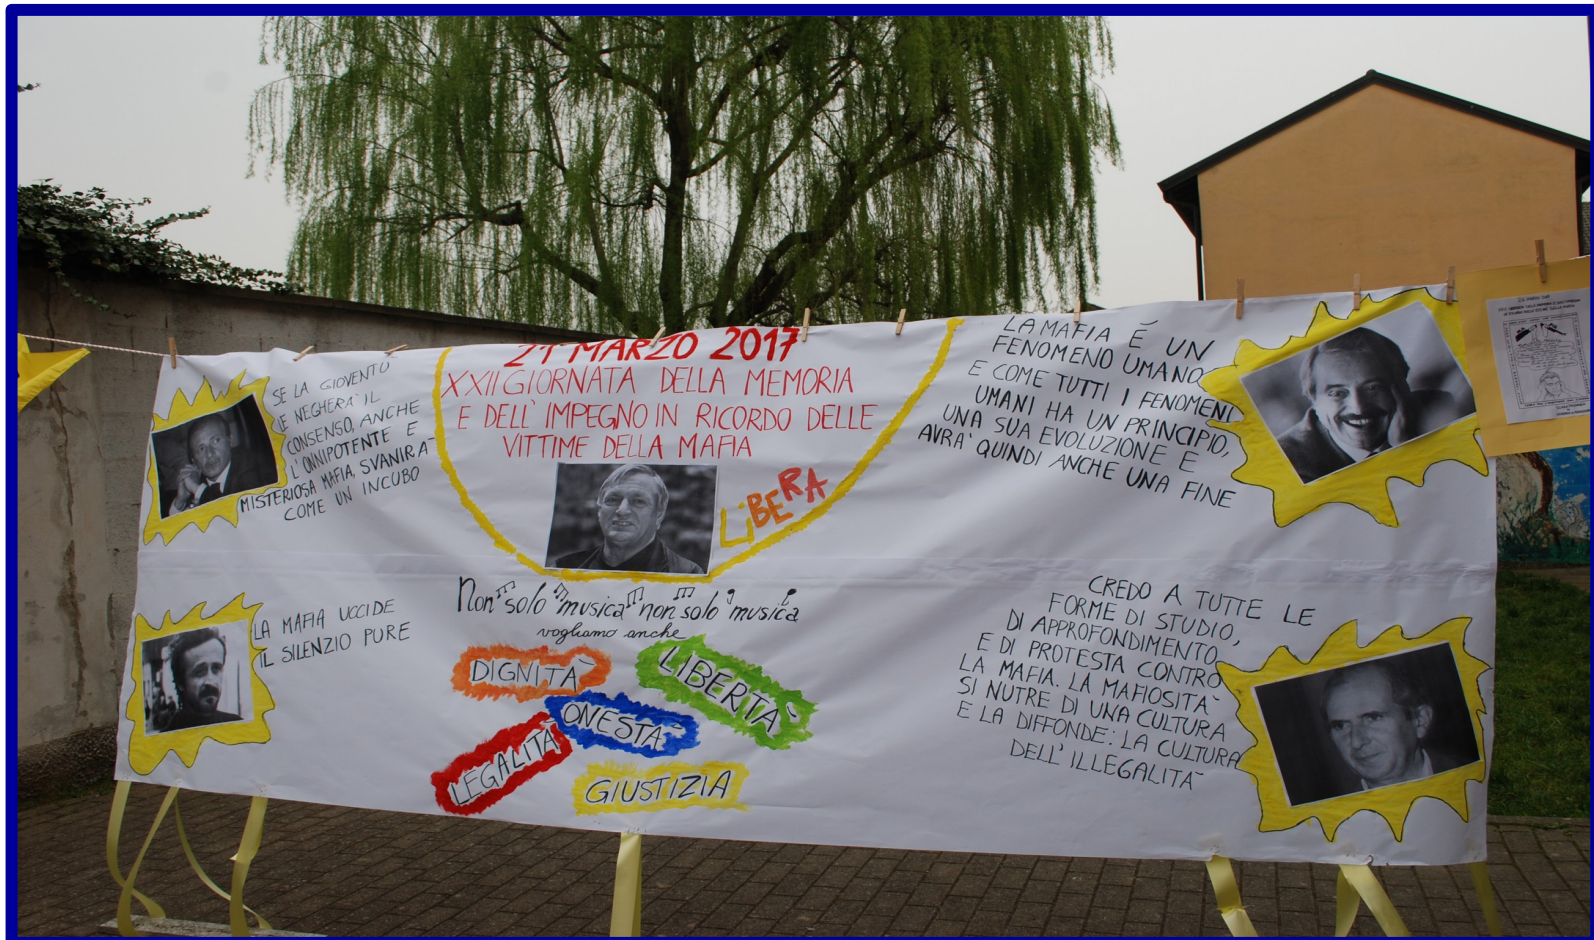 21 MARZO 2017
XXII GIORNATA DELLA MEMORIA
E DELL' IMPEGNO IN RICORDO DELLE
VITTIME DELLA MAFIA
LiBERA
SE LA GIOVENTÙ
LE NEGHERA' IL
CONSENSO, ANCHE
L'ONNIPOTENTE E
MISTERIOSA MAFIA, SVANIRA'
COME UN INCUBO
LA MAFIA UCCIDE
IL SILENZIO PURE
Non solo musica non solo musica
vogliamo anche
DIGNITÀ
LIBERTÀ
ONESTÀ
LEGALITÀ
GIUSTIZIA
LA MAFIA È UN
FENOMENO UMANO
E COME TUTTI I FENOMENI
UMANI HA UN PRINCIPIO,
UNA SUA EVOLUZIONE E
AVRA' QUINDI ANCHE UNA FINE
CREDO A TUTTE LE
FORME DI STUDIO,
DI APPROFONDIMENTO
E DI PROTESTA CONTRO
LA MAFIA. LA MAFIOSITÀ
SI NUTRE DI UNA CULTURA
E LA DIFFONDE: LA CULTURA
DELL' ILLEGALITÀ